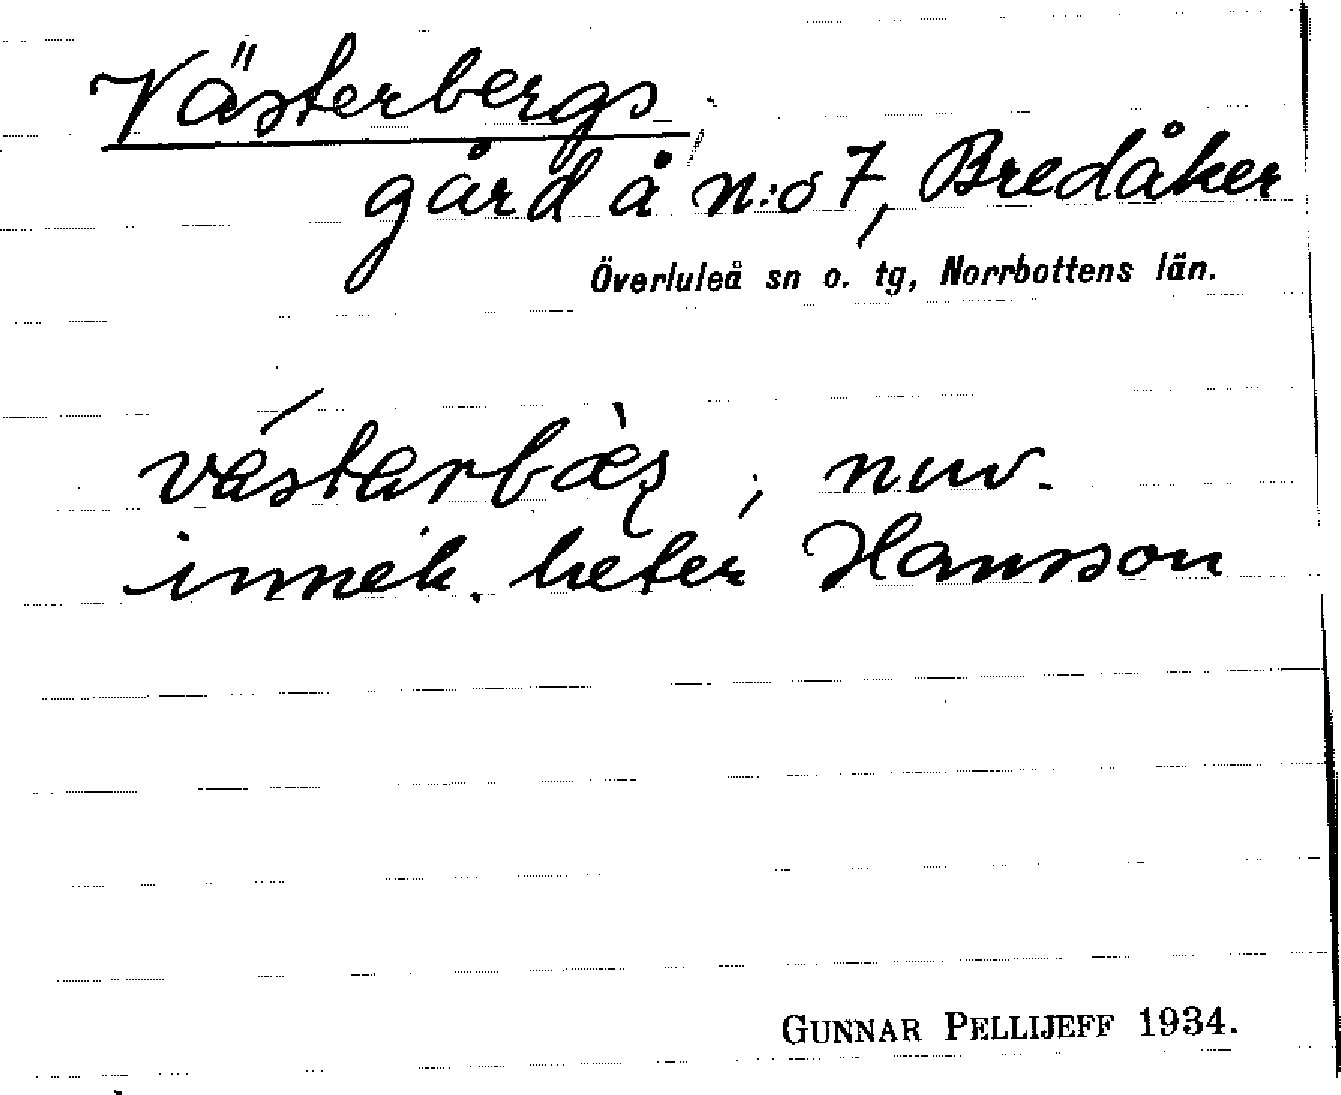 Västerbergs
gård å n:o 7, Bredåker
Överluleå sn o. tg, Norrbottens län.
; nuv.
inneh. heter Hansson
GUNNAR PELLIJEFF 1934.